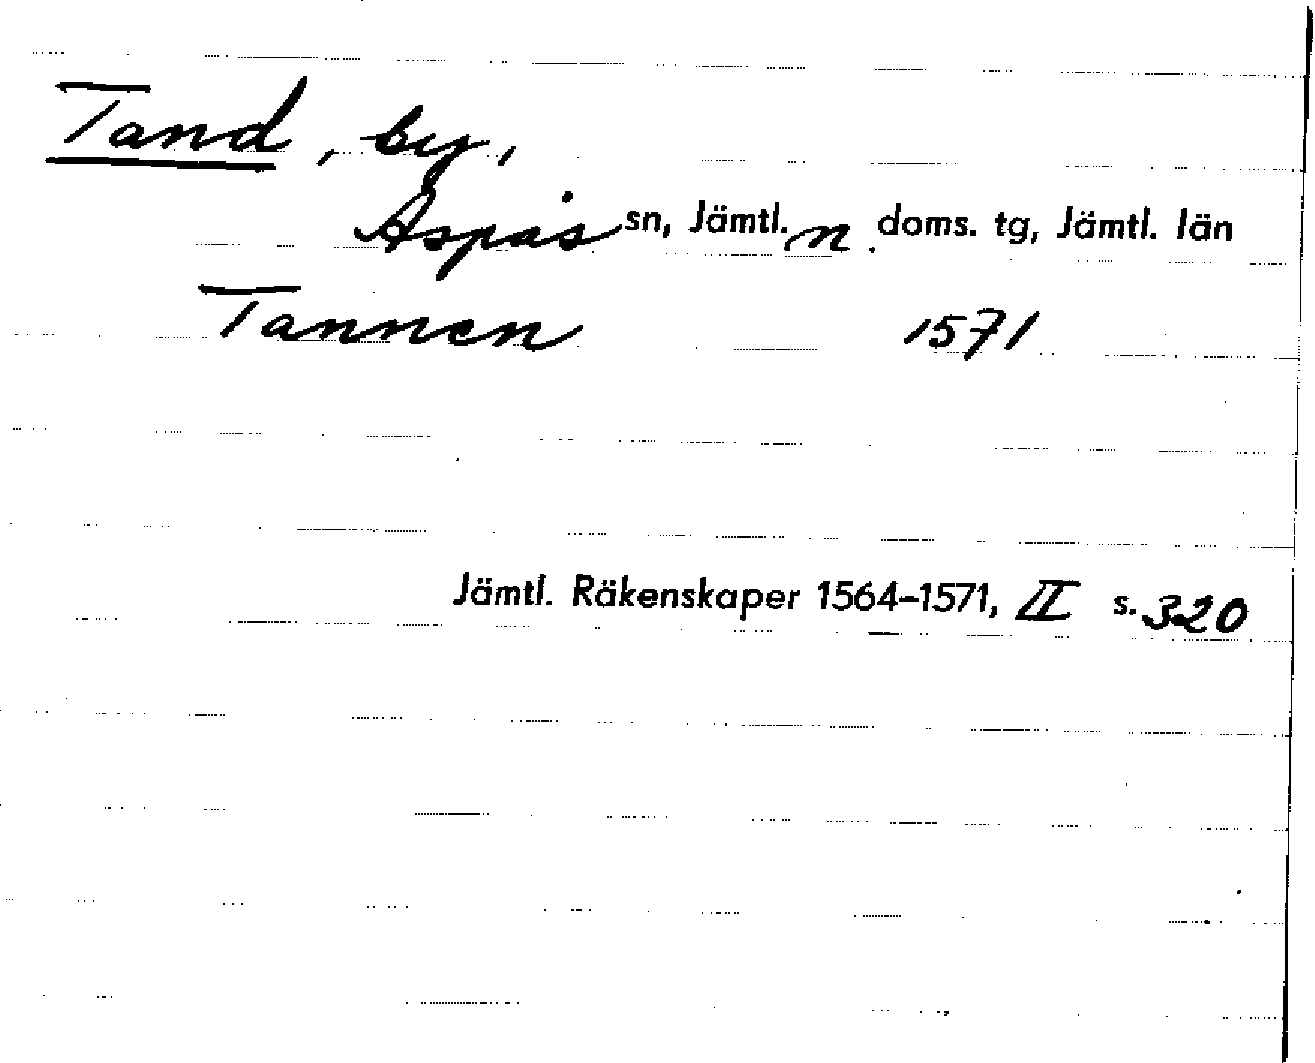 Tand, by,
Aspås sn, Jämtl. n. doms. tg, Jämtl. län
Tannen 1571
Jämtl. Räkenskaper 1564-1571, II s. 320